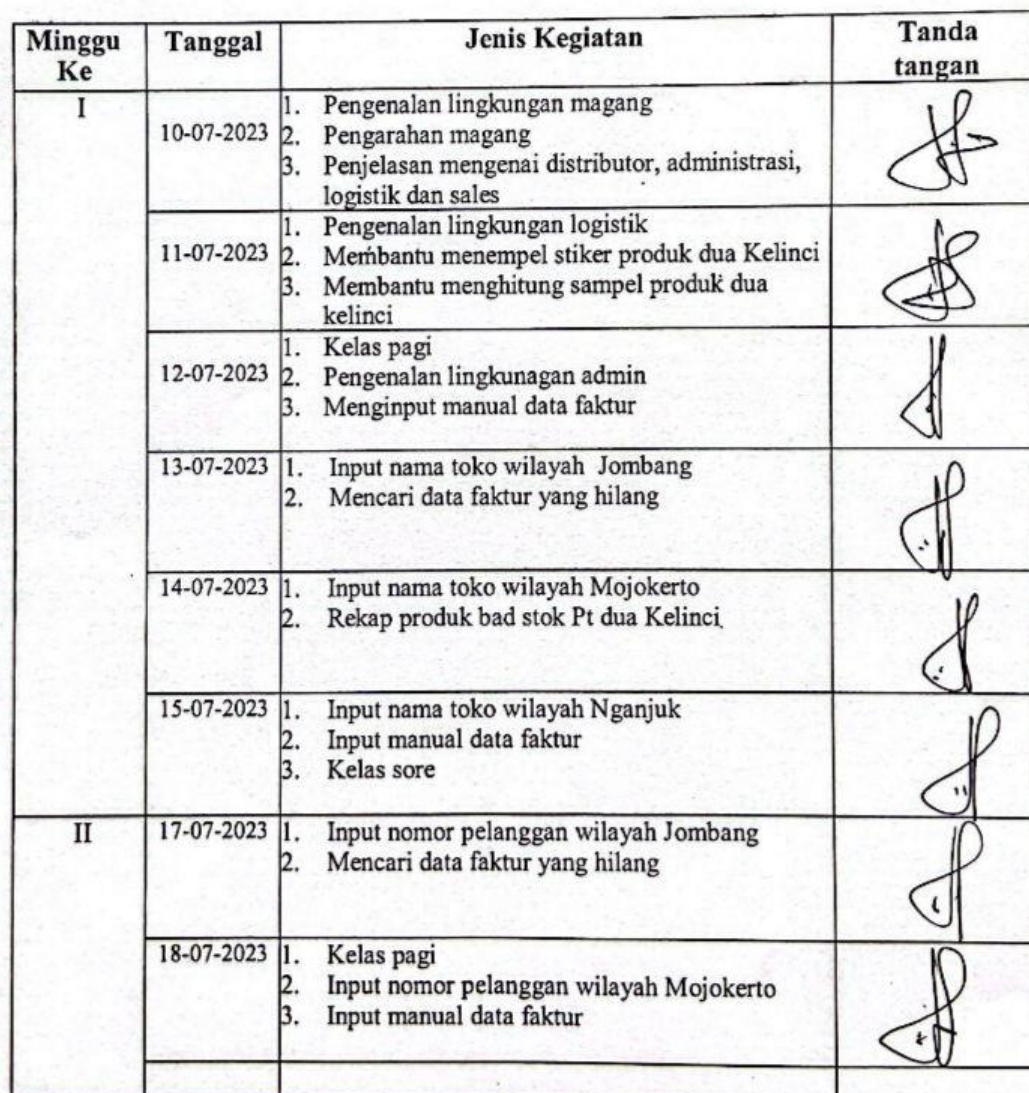 Minggu Ke | Tanggal | Jenis Kegiatan | Tanda tangan
I
10-07-2023
1. Pengenalan lingkungan magang
2. Pengarahan magang
3. Penjelasan mengenai distributor, administrasi,
logistik dan sales
11-07-2023
1. Pengenalan lingkungan logistik
2. Membantu menempel stiker produk dua Kelinci
3. Membantu menghitung sampel produk dua
kelinci
12-07-2023
1. Kelas pagi
2. Pengenalan lingkunagan admin
3. Menginput manual data faktur
13-07-2023
1. Input nama toko wilayah Jombang
2. Mencari data faktur yang hilang
14-07-2023
1. Input nama toko wilayah Mojokerto
2. Rekap produk bad stok Pt dua Kelinci.
15-07-2023
1. Input nama toko wilayah Nganjuk
2. Input manual data faktur
3. Kelas sore
II
17-07-2023
1. Input nomor pelanggan wilayah Jombang
2. Mencari data faktur yang hilang
18-07-2023
1. Kelas pagi
2. Input nomor pelanggan wilayah Mojokerto
3. Input manual data faktur